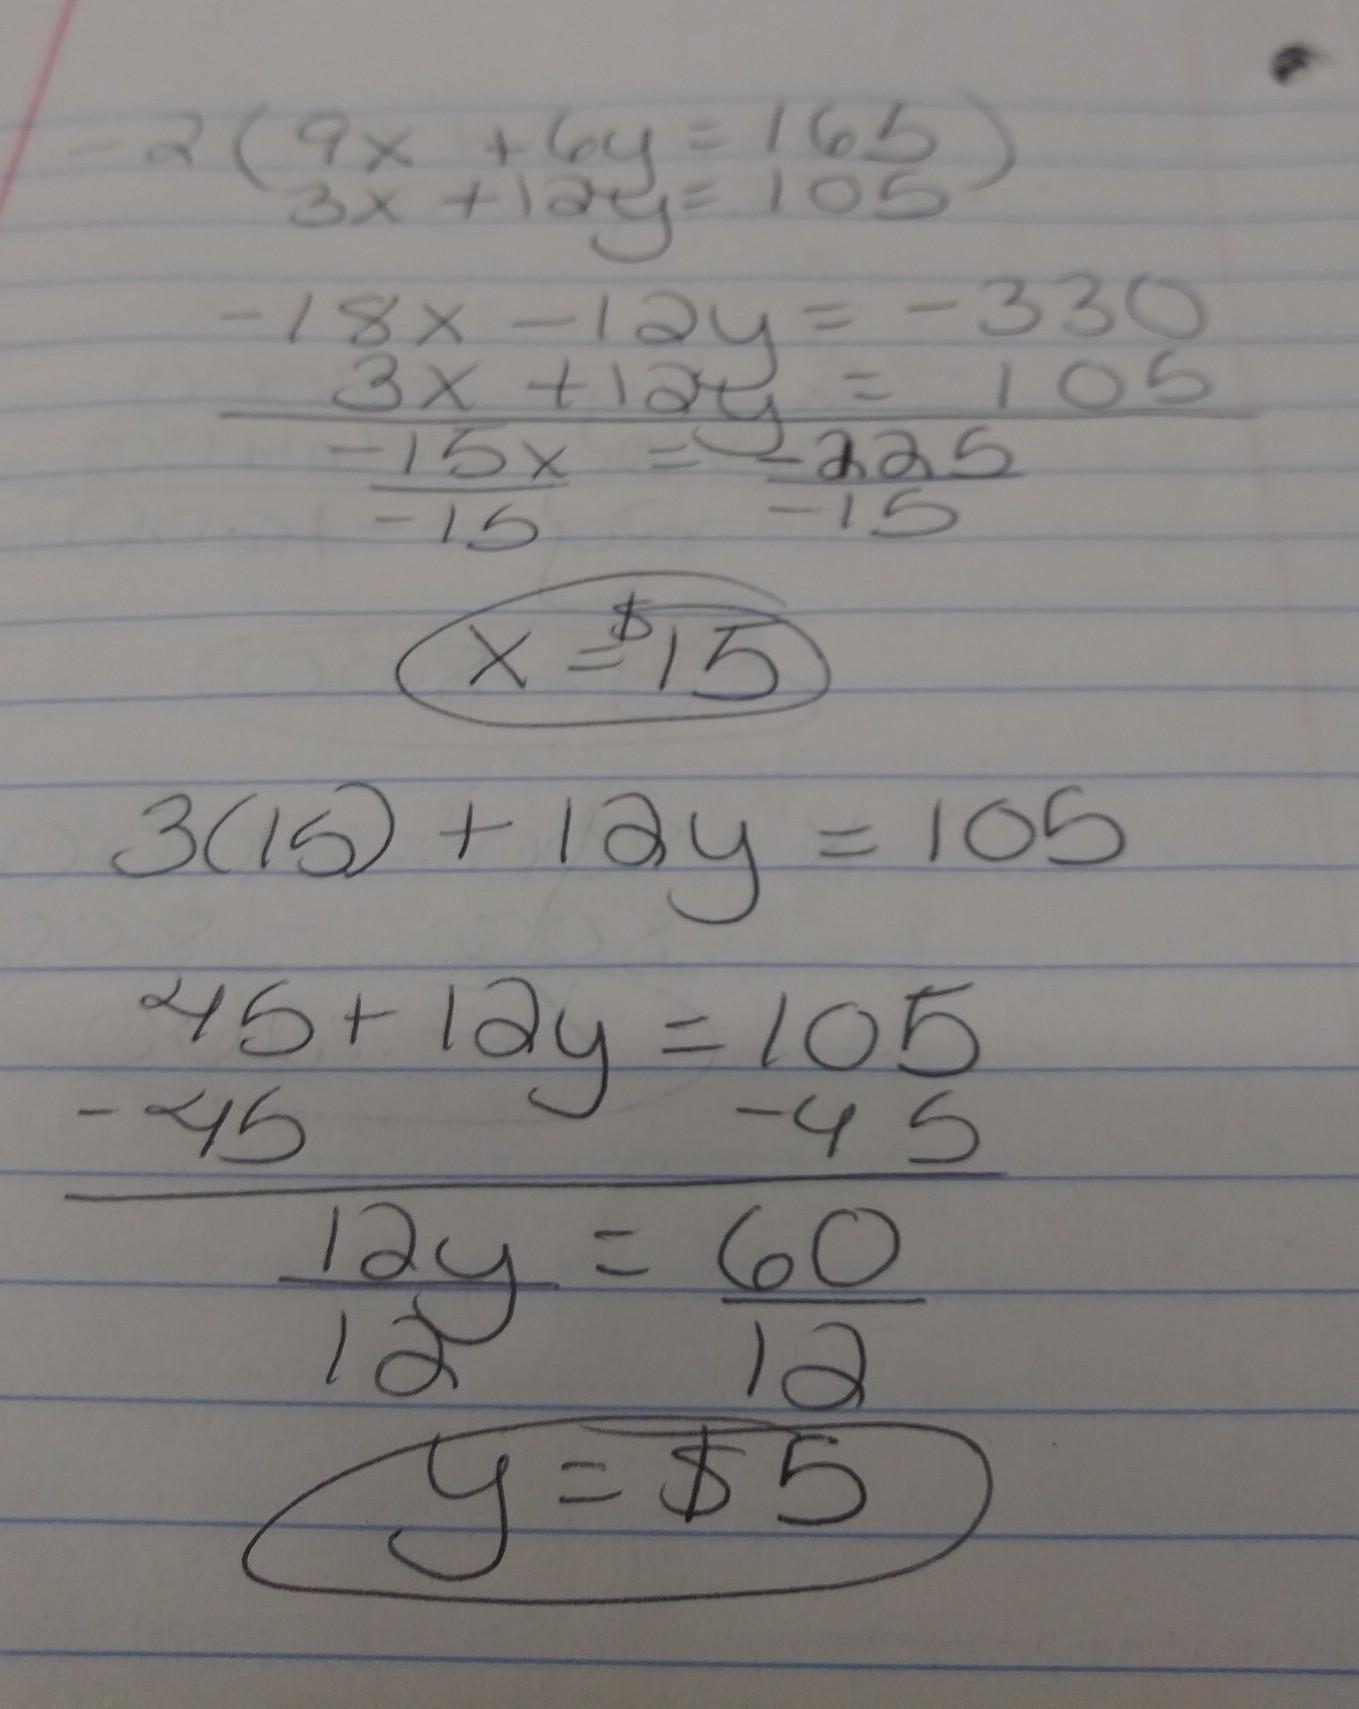 -2(9x + 6y = 165)
3x + 12y = 105
-18x - 12y = -330
3x + 12y = 105
-15x = -225
-15 -15
x = $15
3(15) + 12y = 105
45 + 12y = 105
-45 -45
12y = 60
12 12
y = $5